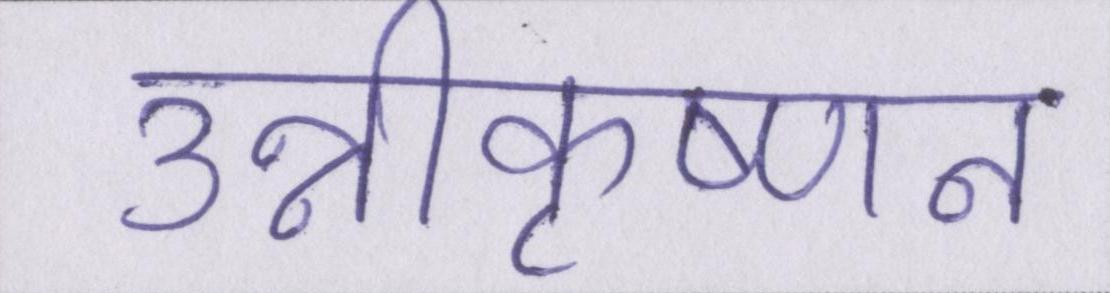 उन्नीकृष्णन